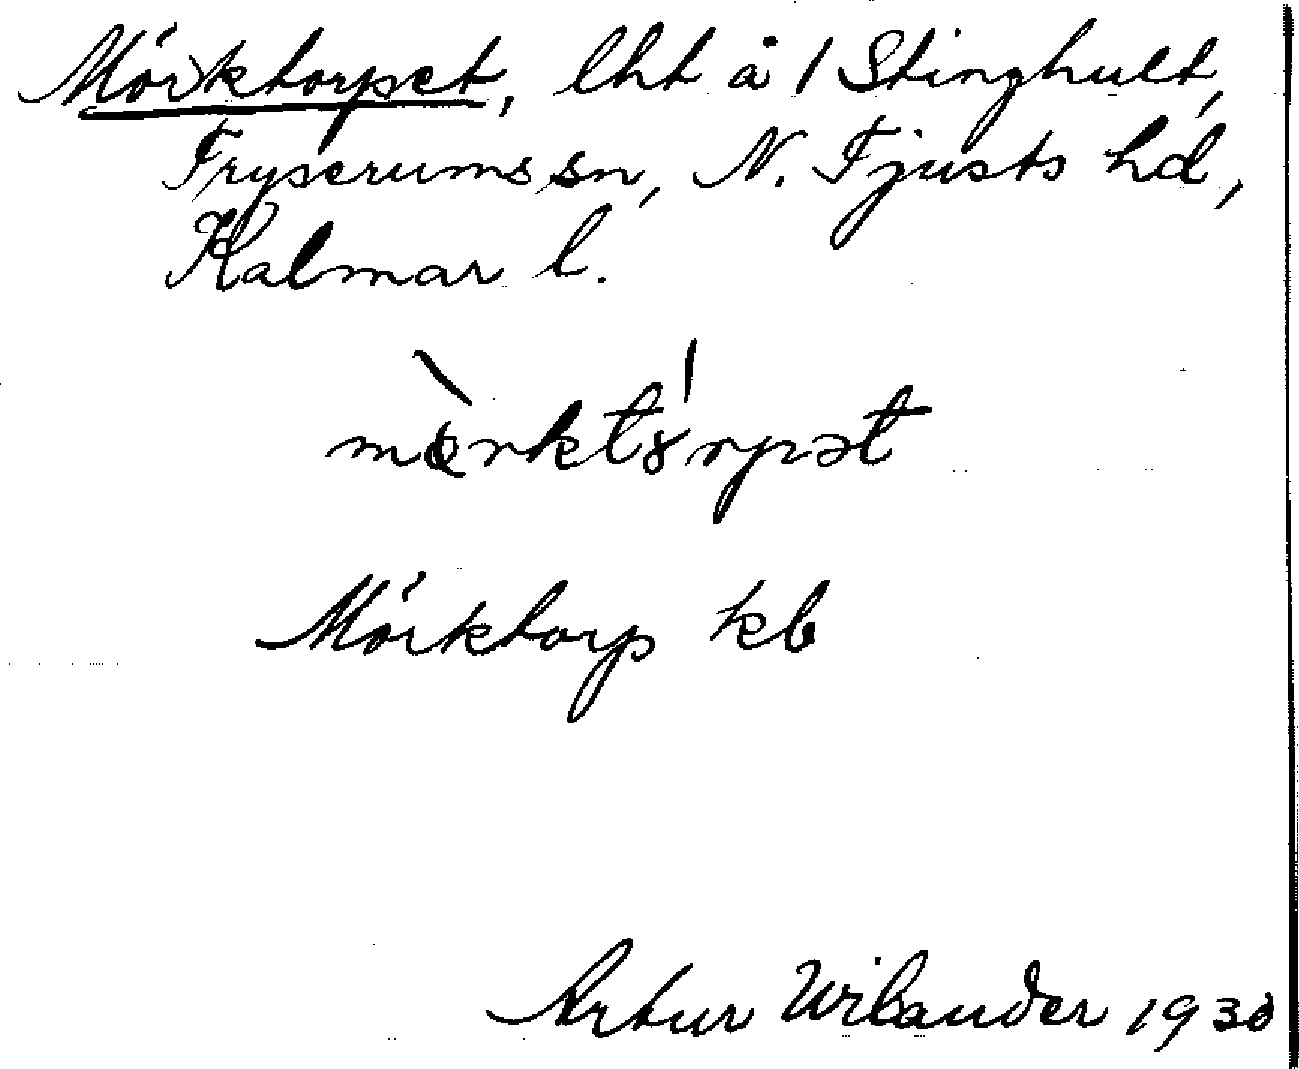 Mörktorpet, lht å 1 Stinghult,
Fryserums sn, N. Tjusts hd,
Kalmar l.
mɵ̀rktȣ́rpət
Mörktorp kb
Artur Wilander 1930